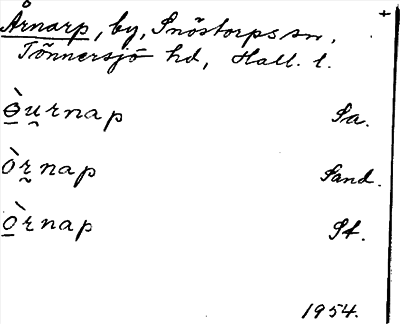 Årnarp, by, Snöstorps sn,
Tönnersjö hd, Hall. l.
ɵ̀u̯rnap Sa.
òr̰nap Sand.
òrnap St.
1954.